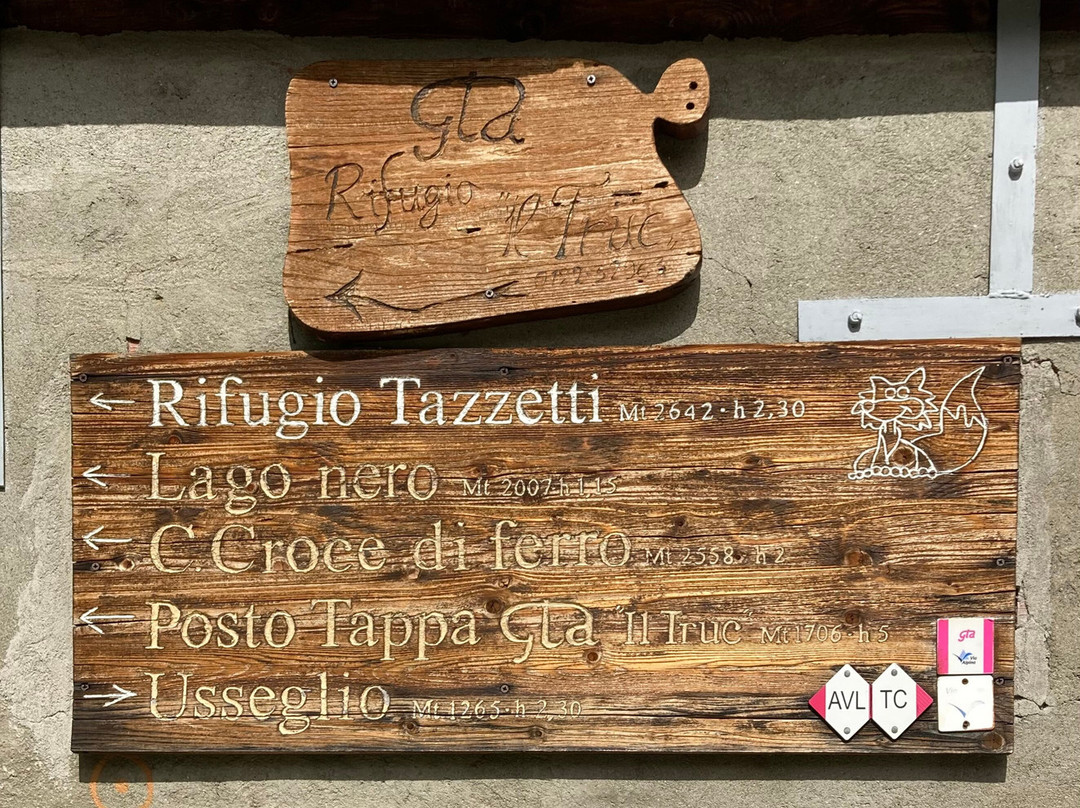 Gta
Rifugio "Il Truc"
Rifugio Tazzetti Mt 2642 · h 2,30
Lago nero Mt 2007 · h 1,15
C. Croce di ferro Mt 2558 · h 2
Posto Tappa Gta "Il Truc" Mt 1706 · h 5
Usseglio Mt 1265 · h 2,30
gta
Via Alpina
AVL TC